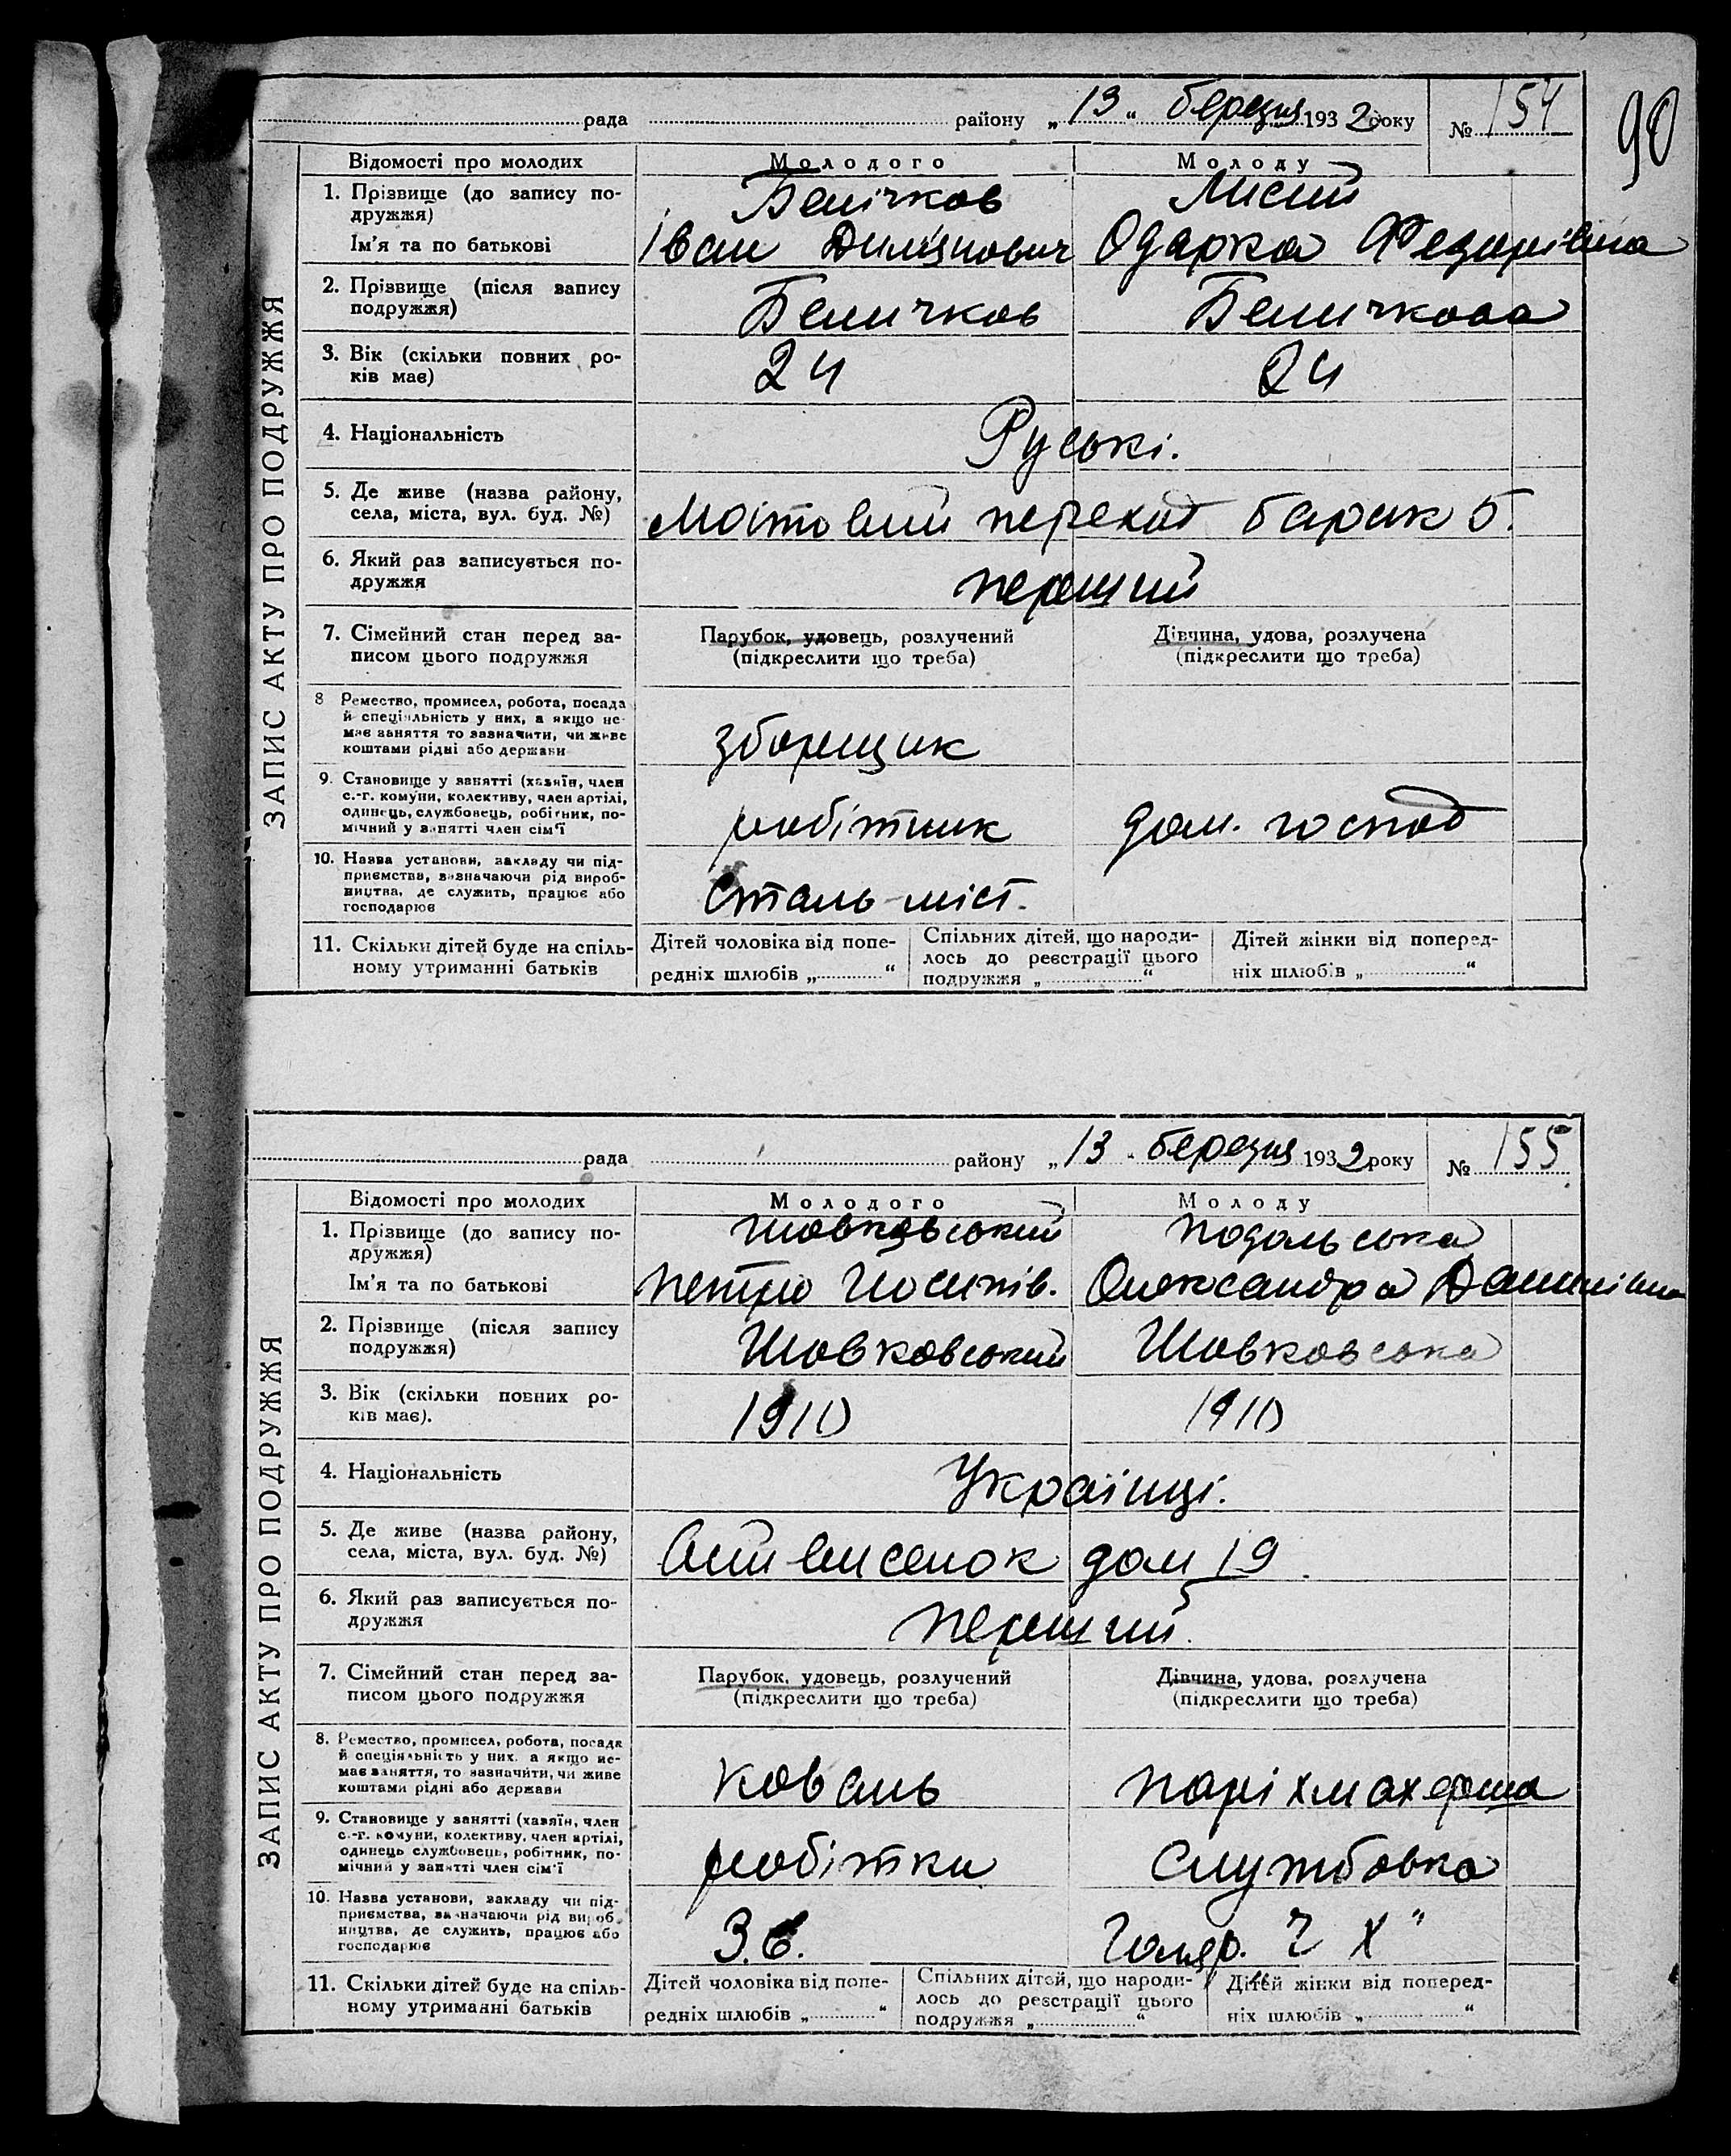 90
рада району „13“ березня 1932 року № 154
ЗАПИС АКТУ ПРО ПОДРУЖЖЯ
Відомості про молодих Молодого Молоду
1. Прізвище (до запису по-
дружжя)
Ім'я та по батькові Іван Одарка
2. Прізвище (після запису
подружжя) Беличков Беличкова
3. Вік (скільки повних ро-
ків має) 24 24
4. Національність Руські.
5. Де живе (назва району,
села, міста, вул. буд. №) Мостовий переход барак 5.
6. Який раз записується по-
дружжя перший
7. Сімейний стан перед за-
писом цього подружжя Парубок, удовець, розлучений Дівчина, удова, розлучена
(підкреслити що треба) (підкреслити що треба)
8 Ремество, промисел, робота, посада
й спеціяльність у них, а якщо не-
має заняття то зазначити, чи живе
коштами рідні або держави зборщик
9. Становище у занятті (хазяїн, член
с.-г. комуни, колективу, член артілі,
одинець, службовець, робітник, по-
мічний у занятті член сім'ї робітник дом. господ
10. Назва установи, закладу чи під-
приємства, зазначаючи рід вироб-
ництва, де служить, працює або
господарює Сталь-міст.
11. Скільки дітей буде на спіль-
ному утриманні батьків
Дітей чоловіка від попе-
редніх шлюбів „ “
Спільних дітей, що народи-
лось до реєстрації цього
подружжя „ “
Дітей жінки від поперед-
ніх шлюбів „ “
рада району „13“ березня 1932 року № 155
ЗАПИС АКТУ ПРО ПОДРУЖЖЯ
Відомості про молодих Молодого Молоду
1. Прізвище (до запису по-
дружжя) Шовковський Подольська
Ім'я та по батькові Петро Йосипів. Олександра
2. Прізвище (після запису
подружжя) Шовковський Шовковська
3. Вік (скільки повних ро-
ків має). 1910 1910
4. Національність Українці.
5. Де живе (назва району,
села, міста, вул. буд. №) дом 19
6. Який раз записується по-
дружжя перший.
7. Сімейний стан перед за-
писом цього подружжя Парубок, удовець, розлучений Дівчина, удова, розлучена
(підкреслити що треба) (підкреслити що треба)
8. Ремество, промисел, робота, посада
й спеціяльність у них, а якщо не-
має заняття, то зазначити, чи живе
коштами рідні або держави Коваль паріхмахерша
9. Становище у занятті (хазяїн, член
с.-г. комуни, колективу, член артілі,
одинець службовець, робітник, по-
мічний у занятті член сім'ї робітник Службовка
10. Назва установи, закладу чи під-
приємства, зазначаючи рід вироб-
ництва, де служить, працює або
господарює З.б.
11. Скільки дітей буде на спіль-
ному утриманні батьків
Дітей чоловіка від попе-
редніх шлюбів „ “
Спільних дітей, що народи-
лось до реєстрації цього
подружжя „ “
Дітей жінки від поперед-
ніх шлюбів „ “